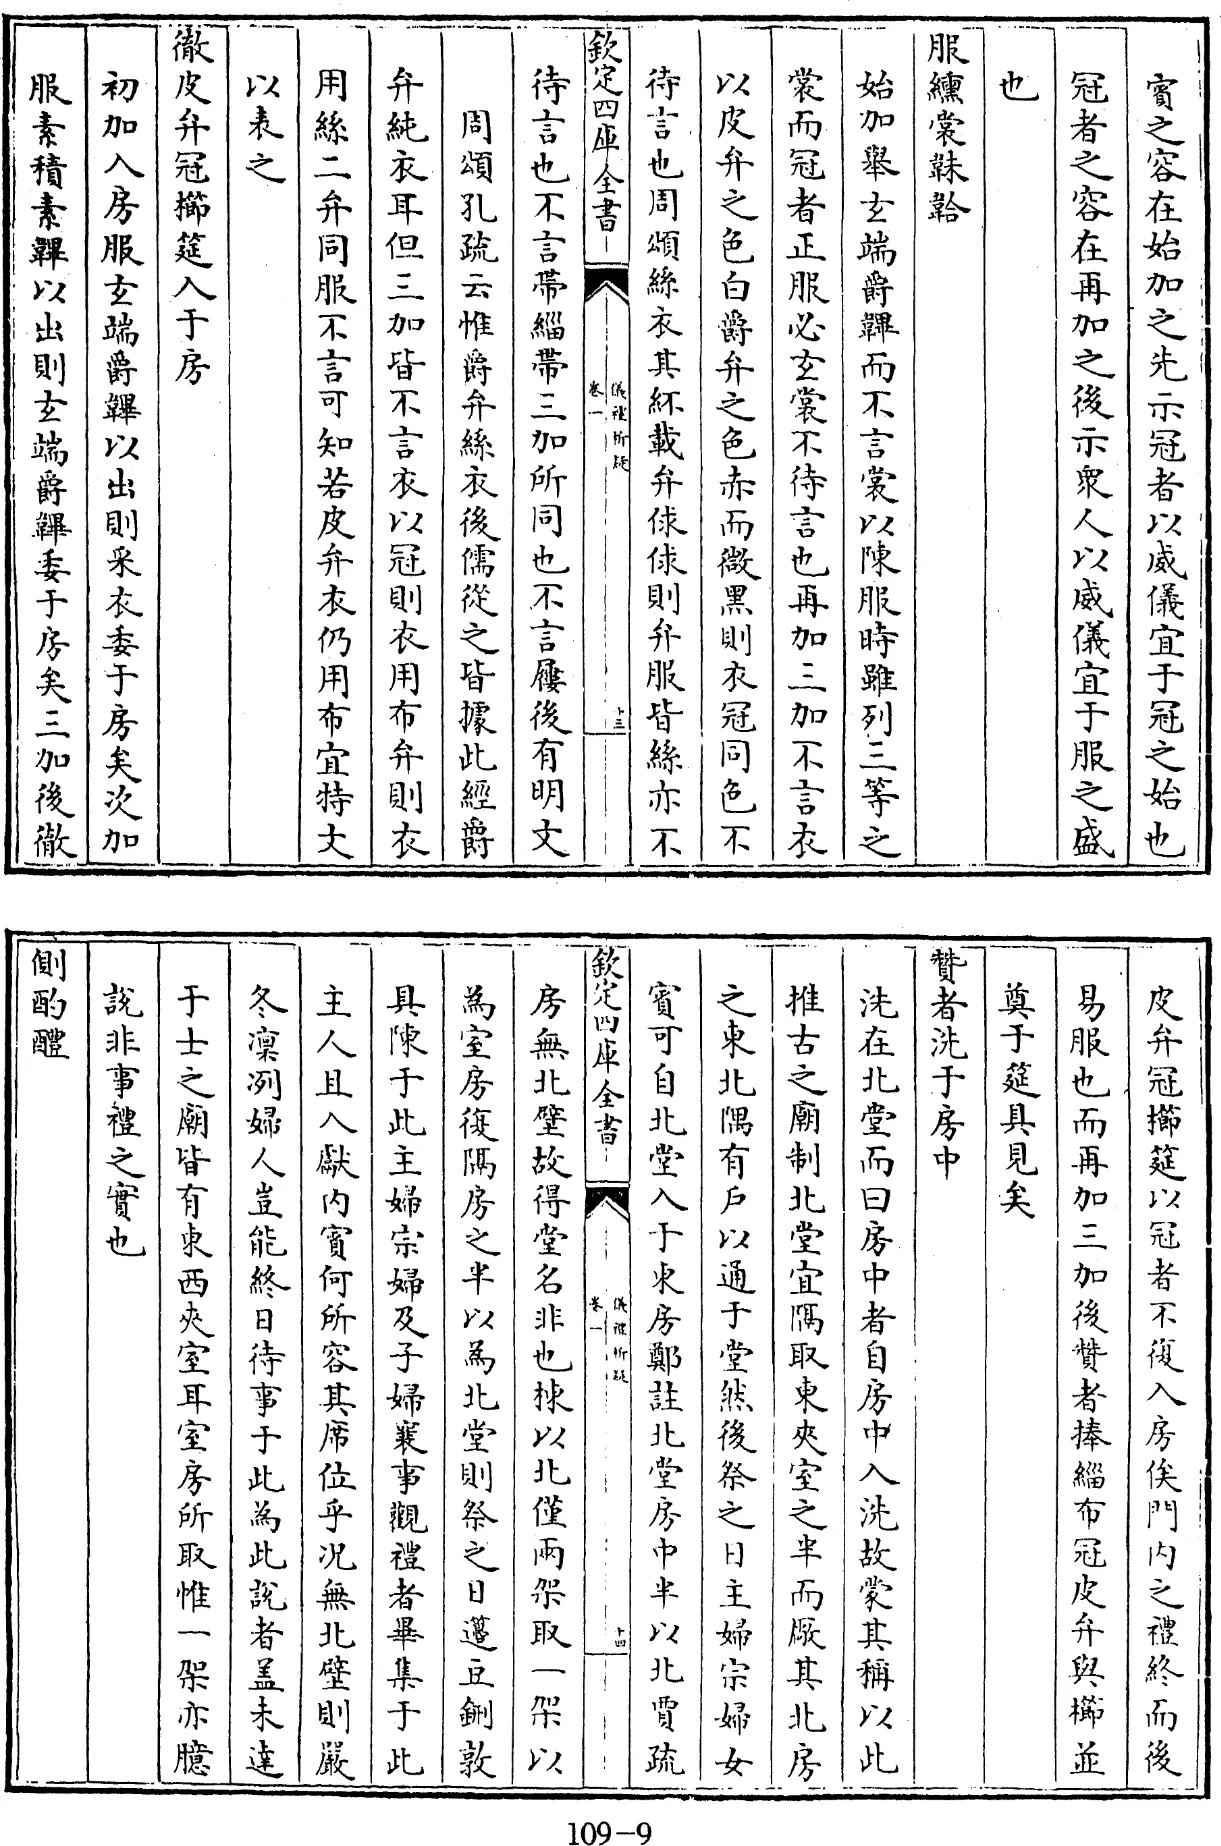 賓之容在始加之先示冠者以威儀宜于冠之始也
冠者之容在再加之後示衆人以威儀宜于服之盛
也
服纁裳韎韐
始加舉玄端爵韠而不言裳以陳服時雖列三等之
裳而冠者正服必玄裳不待言也再加三加不言衣
以皮弁之色白爵弁之色赤而微黑則衣冠同色不
待言也周頌絲衣其紑載弁俅俅則弁服皆絲亦不
欽定四庫全書
儀禮析疑
卷一
十三
待言也不言帶緇帶三加所同也不言屨後有明文
周頌孔疏云惟爵弁絲衣後儒從之皆據此經爵
弁純衣耳但三加皆不言衣以冠則衣用布弁則衣
用絲二弁同服不言可知若皮弁衣仍用布宜特文
以表之
徹皮弁冠櫛筵入于房
初加入房服玄端爵韠以出則采衣委于房矣次加
服素積素韠以出則玄端爵韠委于房矣三加後徹
皮弁冠櫛筵以冠者不復入房俟門内之禮終而後
易服也而再加三加後贊者捧緇布冠皮弁與櫛並
奠于筵具見矣
贊者洗于房中
洗在北堂而曰房中者自房中入洗故蒙其稱以此
推古之廟制北堂宜隔取東夾室之半而厰其北房
之東北隅有戶以通于堂然後祭之日主婦宗婦女
賓可自北堂入于東房鄭註北堂房中半以北賈疏
欽定四庫全書
儀禮析疑
卷一
十四
房無北壁故得堂名非也棟以北僅兩架取一架以
為室房復隔房之半以為北堂則祭之日籩豆鉶敦
具陳于此主婦宗婦及子婦襄事觀禮者畢集于此
主人且入獻内賓何所容其席位乎况無北壁則嚴
冬凛冽婦人豈能終日待事于此為此説者盖未達
于士之廟皆有東西夾室耳室房所取惟一架亦臆
説非事禮之實也
側酌醴
109-9